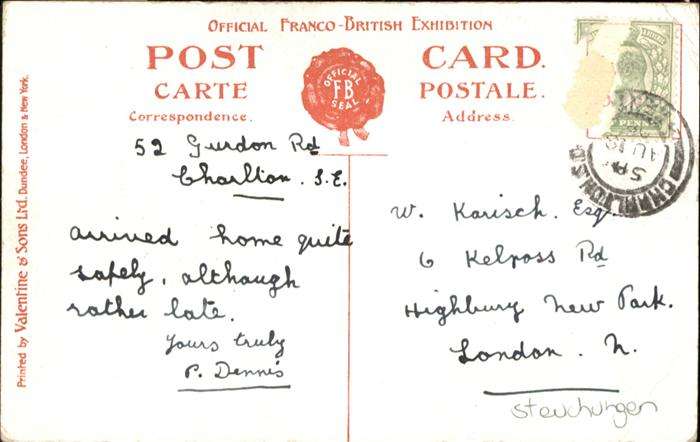 OFFICIAL FRANCO-BRITISH EXHIBITION
POST CARD.
CARTE POSTALE.
OFFICIAL
FB
SEAL
Correspondence.
Address.
Printed by Valentine & Sons Ltd. Dundee, London & New York.
52 Gurdon Rd
Charlton. S.E.
arrived home quite
safely, although
rather late.
Yours truly
P. Dennis
W. Karisch. Esq
6 Kelross Rd
Highbury New Park.
London. N.
CHARLTON S.O
5 PM
AU 19